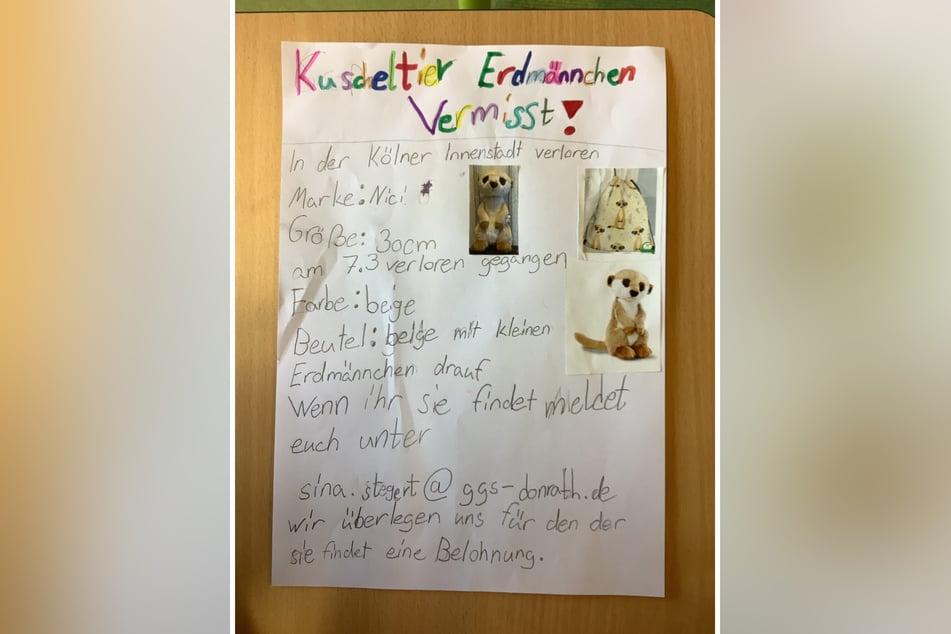 Kuscheltier Erdmännchen
Vermisst!
In der Kölner Innenstadt verloren
Marke: Nici
Größe: 30cm
am 7.3 verloren gegangen
Farbe: beige
Beutel: beige mit kleinen
Erdmännchen drauf
Wenn ihr sie findet meldet
euch unter
sina.stegert@ggs-donrath.de
wir überlegen uns für den der
sie findet eine Belohnung.